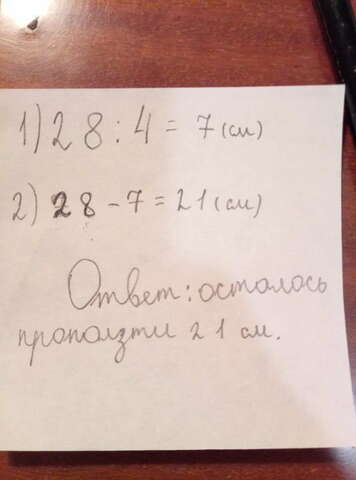 1) 28 : 4 = 7 (см)
2) 28 - 7 = 21 (см)
Ответ: осталось
проползти 21 см.